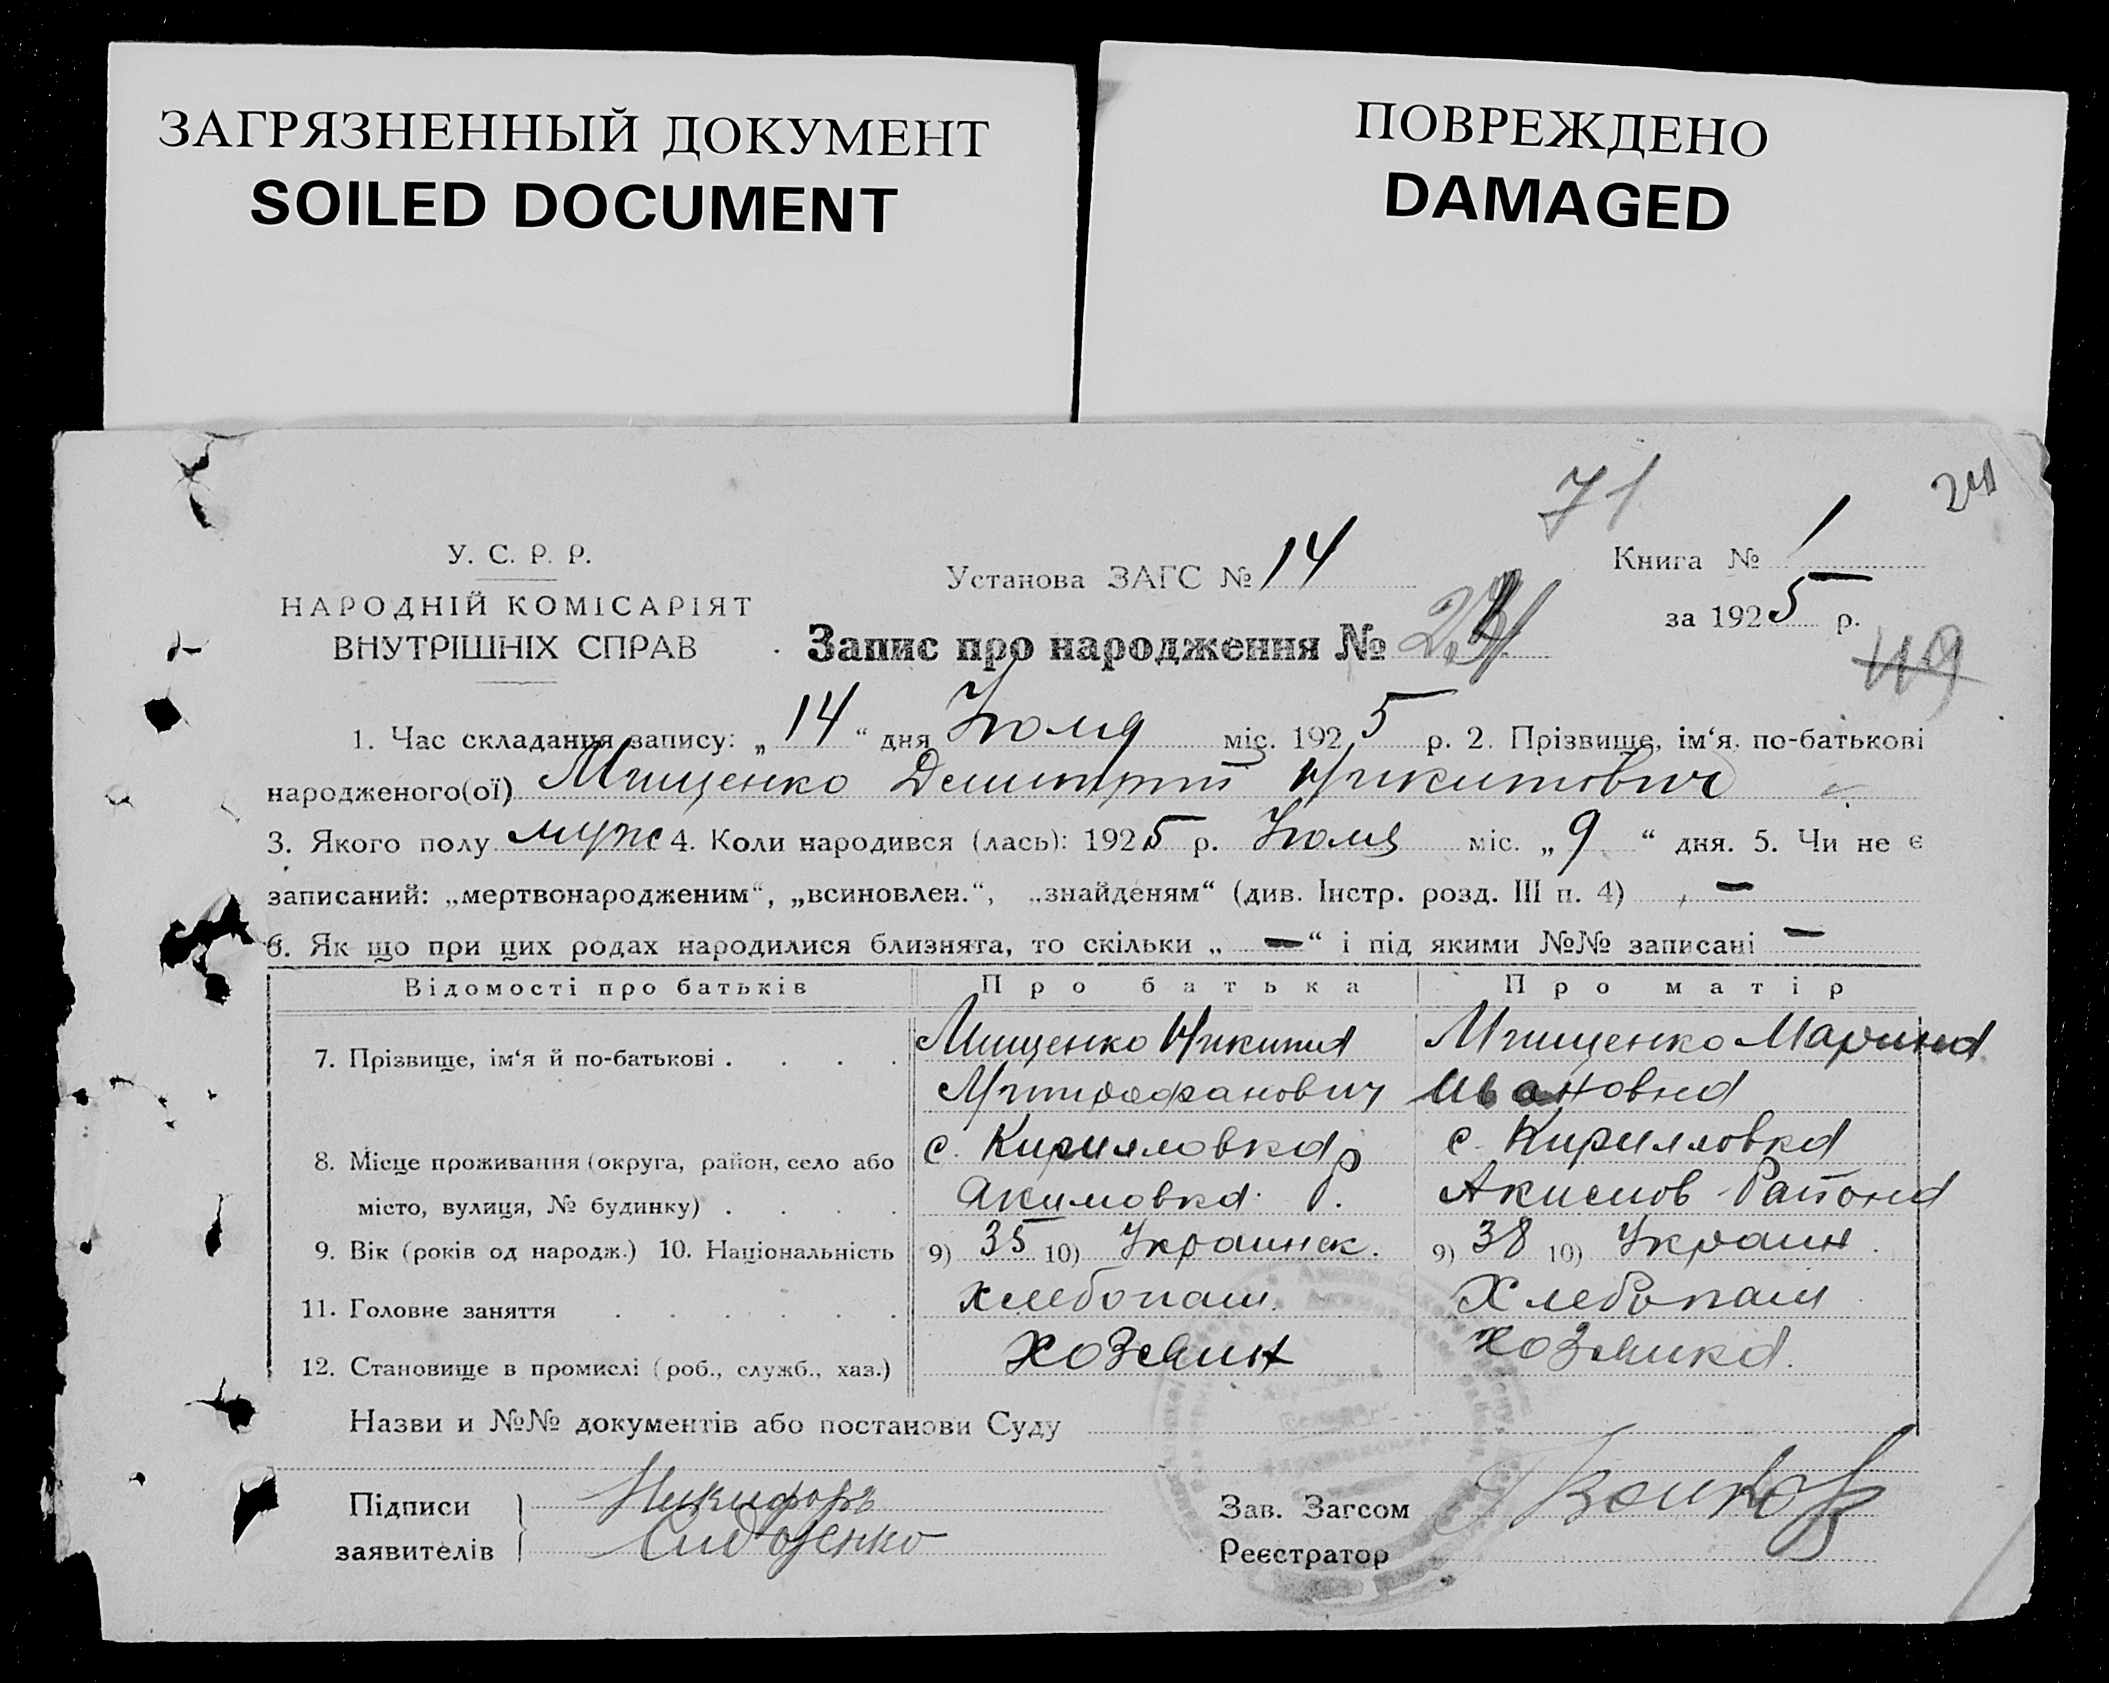 ЗАГРЯЗНЕННЫЙ ДОКУМЕНТ
SOILED DOCUMENT
ПОВРЕЖДЕНО
DAMAGED
71
24
У. С. Р. Р.
НАРОДНІЙ КОМІСАРІЯТ
ВНУТРІШНІХ СПРАВ
Установа ЗАГС № 14
Книга № 1
за 1925 р.
Запис про народження №
119
1. Час складання запису: „14“ дня Июля міс. 1925 р. 2. Прізвище, ім‘я, по-батькові
народженого(ої) Мищенко Демитрий Никитович
3. Якого полу муж 4. Коли народився (лась): 1925 р. Июля міс. „9“ дня. 5. Чи не є
записаний: „мертвонародженим“, „всиновлен.“, „знайденям“ (див. Інстр. розд. III п. 4) —
6. Як що при цих родах народилися близнята, то скільки „—“ і під якими №№ записані —
Відомості про батьків Про батька Про матір
7. Прізвище, ім‘я й по-батькові . . . . Мищенко Никита Мищенко Марина
Митрофанович Ивановна
8. Місце проживання (округа, район, село або с. Кирилловка с. Кирилловка
місто, вулиця, № будинку) . . . . Акимовка Р. Акимов Района
9. Вік (років од народж.) 10. Національність 9) 35 10) Украинск. 9) 38 10) Украин.
11. Головне заняття . . . . . . Хлебопаш. Хлебопаш
12. Становище в промислі (роб., служб., хаз.) хозяин хозяика.
Назви и №№ документів або постанови Суду
Підписи Никифоръ
заявителів Сидоренко
Зав. Загсом
Реєстратор